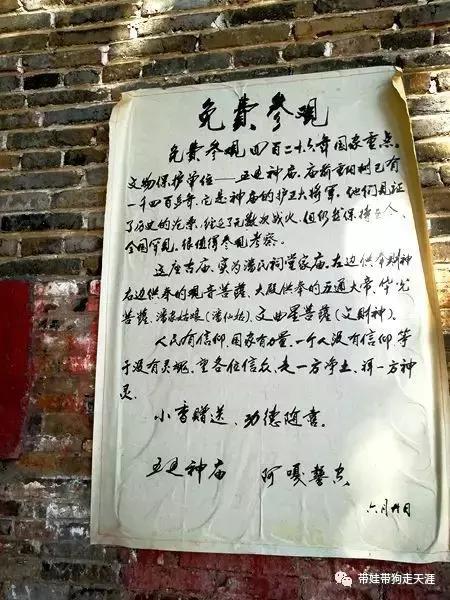 免费参观
免费参观四百二十六年国家重点
文物保护单位——五通神庙。庙前重阳树已有
一千四百多年，它是神庙的护卫大将军，他们见证
了历史的沧桑，经过了无数次战火，但仍然保持
全国罕见，很值得参观考察。
这座古庙，实为潘氏祠堂家庙。左边供奉财神
右边供奉的观音菩萨，大殿供奉的五通大帝、华光
菩萨、潘家姑娘（潘仙姑）、文曲星菩萨（文财神）。
人民有信仰，国家有力量，一个人没有信仰，等
于没有灵魂，望各位信众，走一方净土，拜一方神
灵。
小香赠送、功德随喜。
五通神庙 阿嘎
六月廿日
带娃带狗走天涯